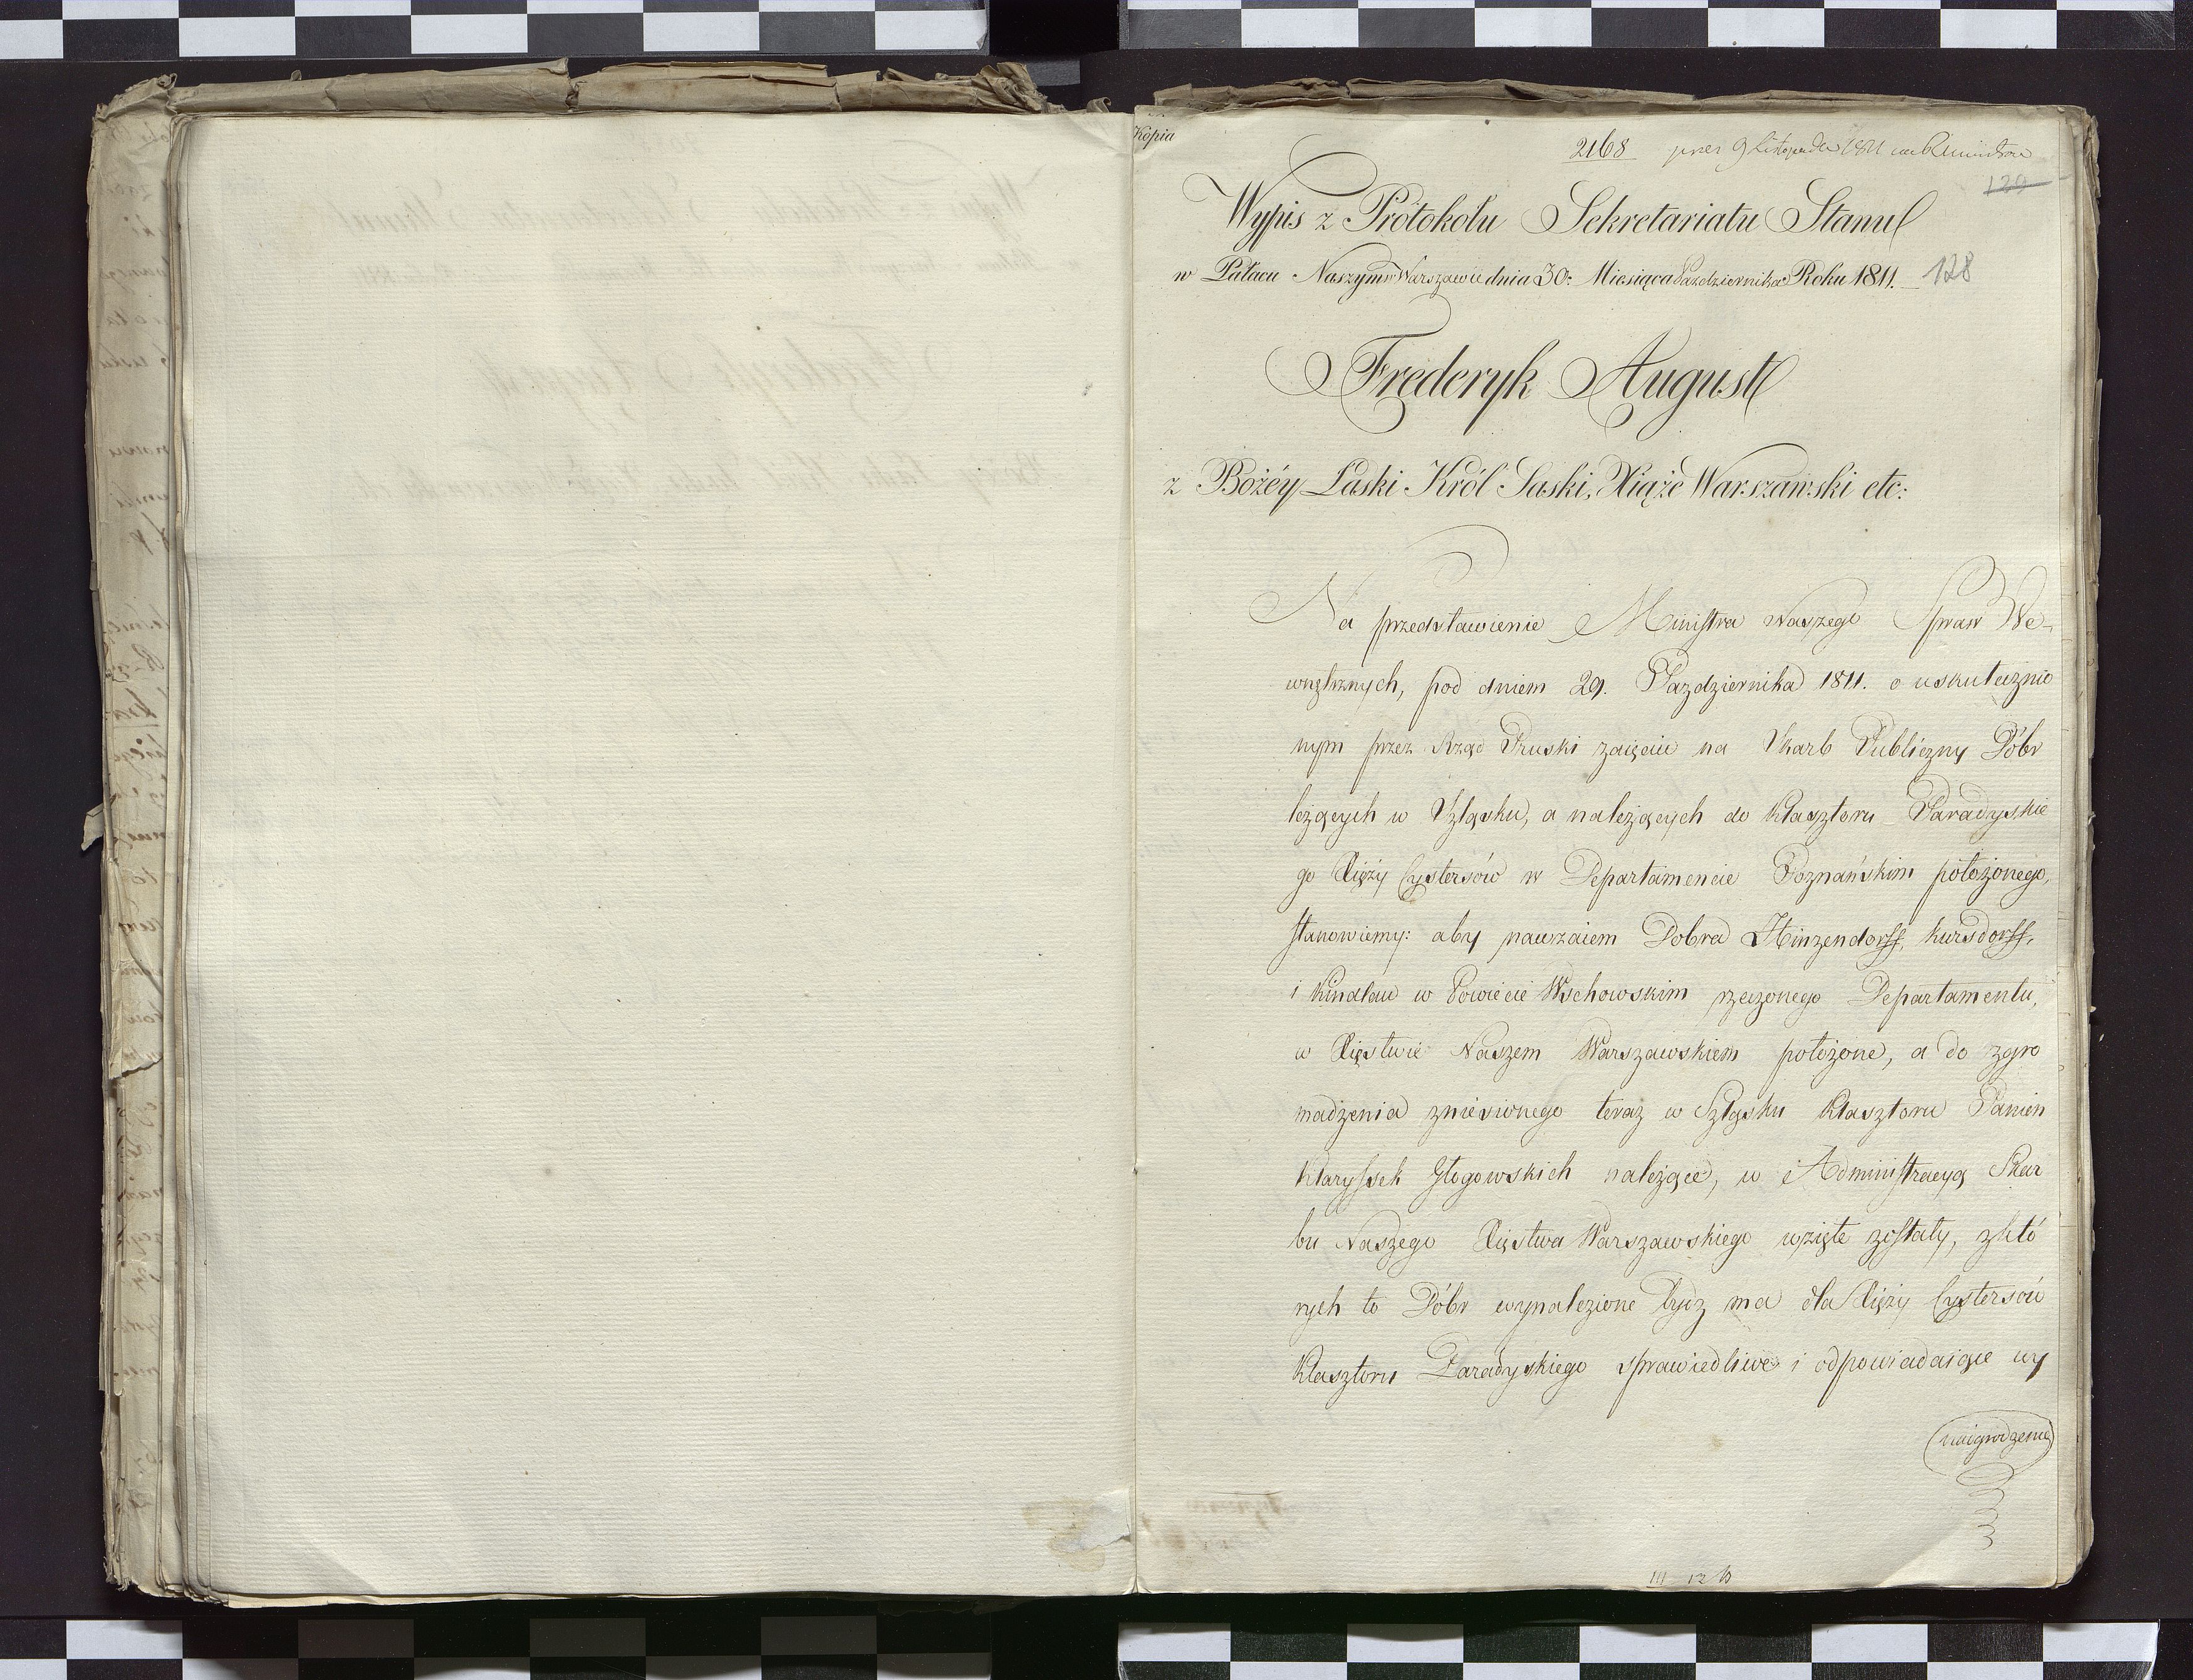 Kopia
2168 prez 9 Listopada 1811
120
Wypis z Prótokołu Sekretariatu Stanu
w Pałacu Naszym w Warszawie dnia 30: Miesiąca Pazdziernika Roku 1811.
128
Frederyk August
z Bożéy Łaski Król Saski, Xiąże Warszawski etc:
Na przedstawienie Ministra Naszego Spraw We-
wnętrznych, pod dniem 29. Pazdziernika 1811. o uskutecznio
nym przez Rząd Pruski zaięciu na Skarb Publiczny Dóbr
leżących w Szląsku, a należących do Klasztoru Paradyskie
go Xięży Cystersów w Departamencie Poznańskim położonego,
stanowiemy: aby nawzaiem Dobra Hinzendorff, Kursdorff,
i Kindlau w Powiecie Wschowskim rzeczonego Departamentu,
w Xięstwie Naszem Warszawskiem położone, a do zgro
madzenia zniesionego teraz w Szląsku Klasztoru Panien
Klaryssek Głogowskich należące, w Administracyą Skar
bu Naszego Xięstwa Warszawskiego wzięte zostały, z któ
rych to Dóbr wynalezione bydz ma dla Xięży Cystersów
Klasztoru Paradyskiego sprawiedliwe i odpowiadaiące wy
nagrodzenie
III 12 b